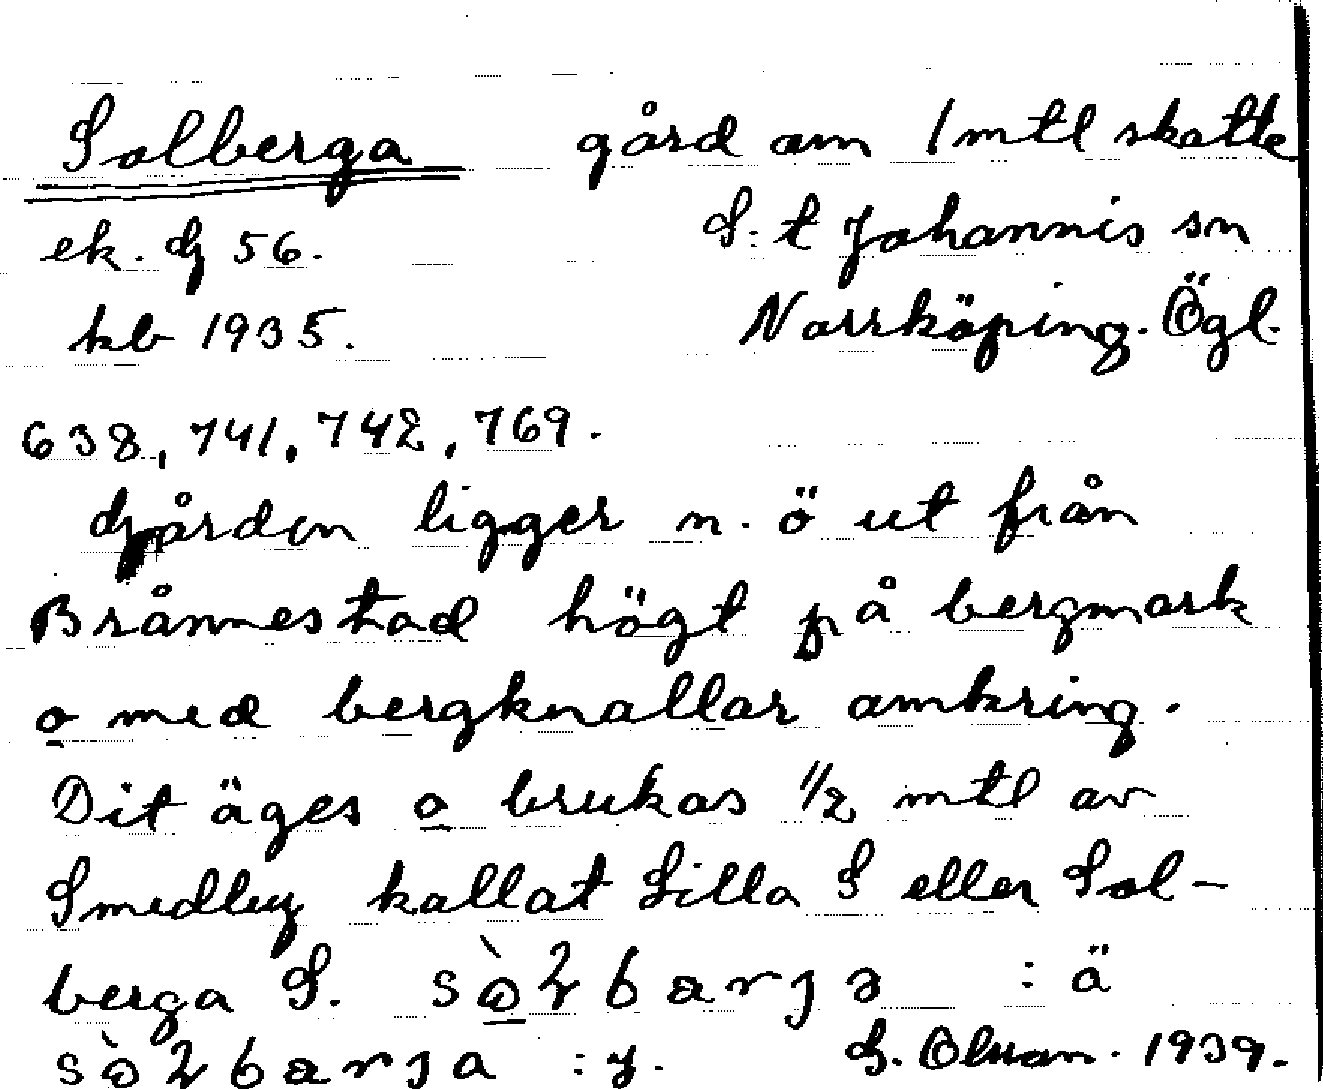 Solberga gård om 1 mtl skatte
ek. G 56. S:t Johannis sn
kb 1935. Norrköping. Ögl.
638, 741, 742, 769.
Gården ligger n. ö ut från
Brånnestad högt på bergmark
o med bergknallar omkring.
Dit äges o brukas 1/2 mtl av
Smedby kallat Lilla S eller Sol-
berga S. :ä
:y. G. Olsson. 1939.